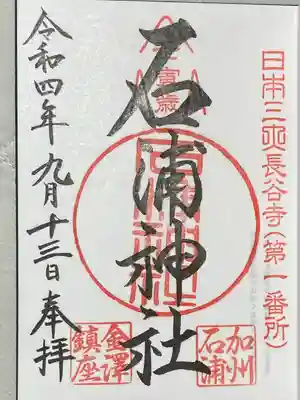 日本三大長谷寺(第一番所)
加州
石浦
寅歳
石浦神社
金澤
鎮座
令和四年九月十三日奉拝